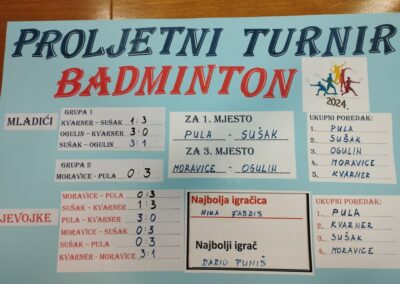 PROLJETNI TURNIR
BADMINTON
2024.
MLADIĆI
GRUPA 1
KVARNER – SUŠAK 1:3
OGULIN – KVARNER 3:0
SUŠAK – OGULIN 3:1
GRUPA 2
MORAVICE - PULA 0:3
ZA 1. MJESTO
PULA - SUŠAK
ZA 3. MJESTO
MORAVICE - OGULIN
UKUPNI POREDAK:
1. PULA
2. SUŠAK
3. OGULIN
4. MORAVICE
5. KVARNER
JEVOJKE
MORAVICE – PULA 0:3
SUŠAK – KVARNER 1:3
PULA – KVARNER 3:0
SUŠAK – MORAVICE 3:0
SUŠAK – PULA 0:3
KVARNER - MORAVICE 3:1
Najbolja igračica
NIKA FABRIS
Najbolji igrač
DARIO
UKUPNI POREDAK:
1. PULA
2. KVARNER
3. SUŠAK
4. MORAVICE